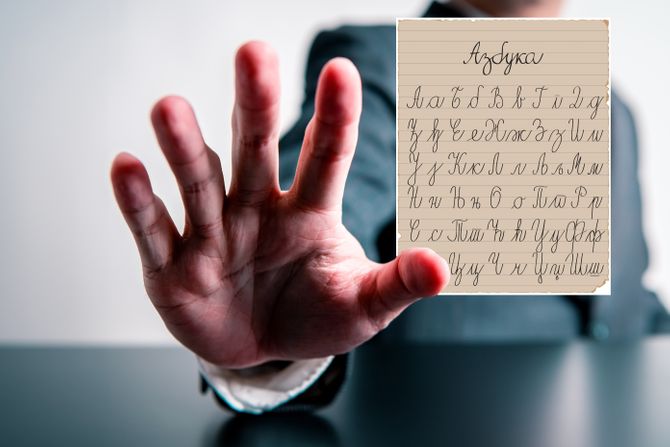 Азбука
А а Б б В в Г г Д д
Ђ ђ Е е Ж ж З з И и
Ј ј К к Л л Љ љ М м
Н н Њ њ О о П п Р р
С с Т т Ћ ћ У у Ф ф
Ц ц Ч ч Џ џ Ш ш